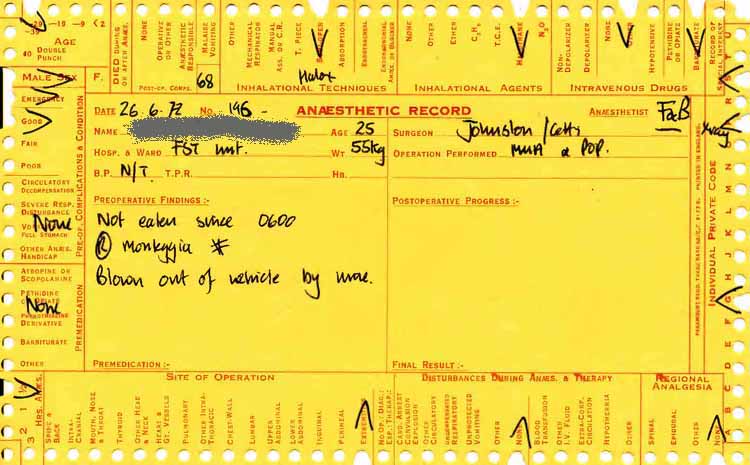 -29 -19 -9 <2
-39
AGE
40 DOUBLE PUNCH
MALE SEX F.
DIED DURING OR AFTER ANÆS.
NONE
OPERATIVE OR OTHER
ANÆSTHETIC RESPONSIBLE
MALAISE VOMITING
POST-OP. COMPL.
68
NONE
OTHER
MECHANICAL RESPIRATOR
MANUAL ASS. OR C.R.
T. PIECE
ABSORPTION
Halox
INHALATIONAL TECHNIQUES
NONE
OTHER
ETHER
C₃H₆
T.C.E.
N₂O
INHALATIONAL AGENTS
NON-DEPOLARIZER
DEPOLARIZER
NONE
OTHER
HYPOTENSIVE
PETHIDINE OR OPIATE
BARBITURATE
INTRAVENOUS DRUGS
RECORD OF SPECIAL INTEREST
EMERGENCY
GOOD
FAIR
POOR
CIRCULATORY DECOMPENSATION
SEVERE RESP. DISTURBANCE
None
FULL STOMACH
OTHER ANÆS. HANDICAP
PRE-OP. COMPLICATIONS & CONDITION
ATROPINE OR SCOPOLAMINE
PETHIDINE
OR OPIATE
None
PHENOTHIAZINE DERIVATIVE
BARBITURATE
OTHER
PREMEDICATION
DATE 26.6.72 NO. 196 -
ANÆSTHETIC RECORD
ANÆSTHETIST FaB
NAME
AGE 25
SURGEON Johnston / Cetti
HOSP. & WARD FST Unit.
WT 55kg
OPERATION PERFORMED MUA & POP.
B.P. N/T. T.P.R.
HB.
PREOPERATIVE FINDINGS :-
POSTOPERATIVE PROGRESS :-
Not eaten since 0600
(R) Monteggia #
Blown out of vehicle by mine.
PREMEDICATION :-
FINAL RESULT :-
PRINTED IN ENGLAND
INDIVIDUAL PRIVATE CODE
A B C D E F G H J K L M N
HRS. ANÆS.
3 2 1 ½
SITE OF OPERATION
SPINE & BACK
INTRA-CRANIAL
MOUTH, NOSE & THROAT
THYROID
OTHER HEAD & NECK
HEART & GT. VESSELS
PULMONARY
OTHER INTRA-THORACIC
CHEST-WALL
LUMBAR
UPPER ABDOMINAL
LOWER ABDOMINAL
INGUINAL
PERINEAL
EXTREMITIES
DISTURBANCES DURING ANÆS. & THERAPY
CARD. ARREST
CONVULSION
EXPLOSION
OTHER CIRCULATORY
UNDERRATED RESPIRATORY
UNPROTECTED VOMITING
OTHER
NONE
BLOOD TRANSFUSION
OTHER I.V. FLUID
EXTRA-CORP. CIRCULATION
HYPOTHERMIA
OTHER
REGIONAL ANALGESIA
SPINAL
EPIDURAL
OTHER
NONE